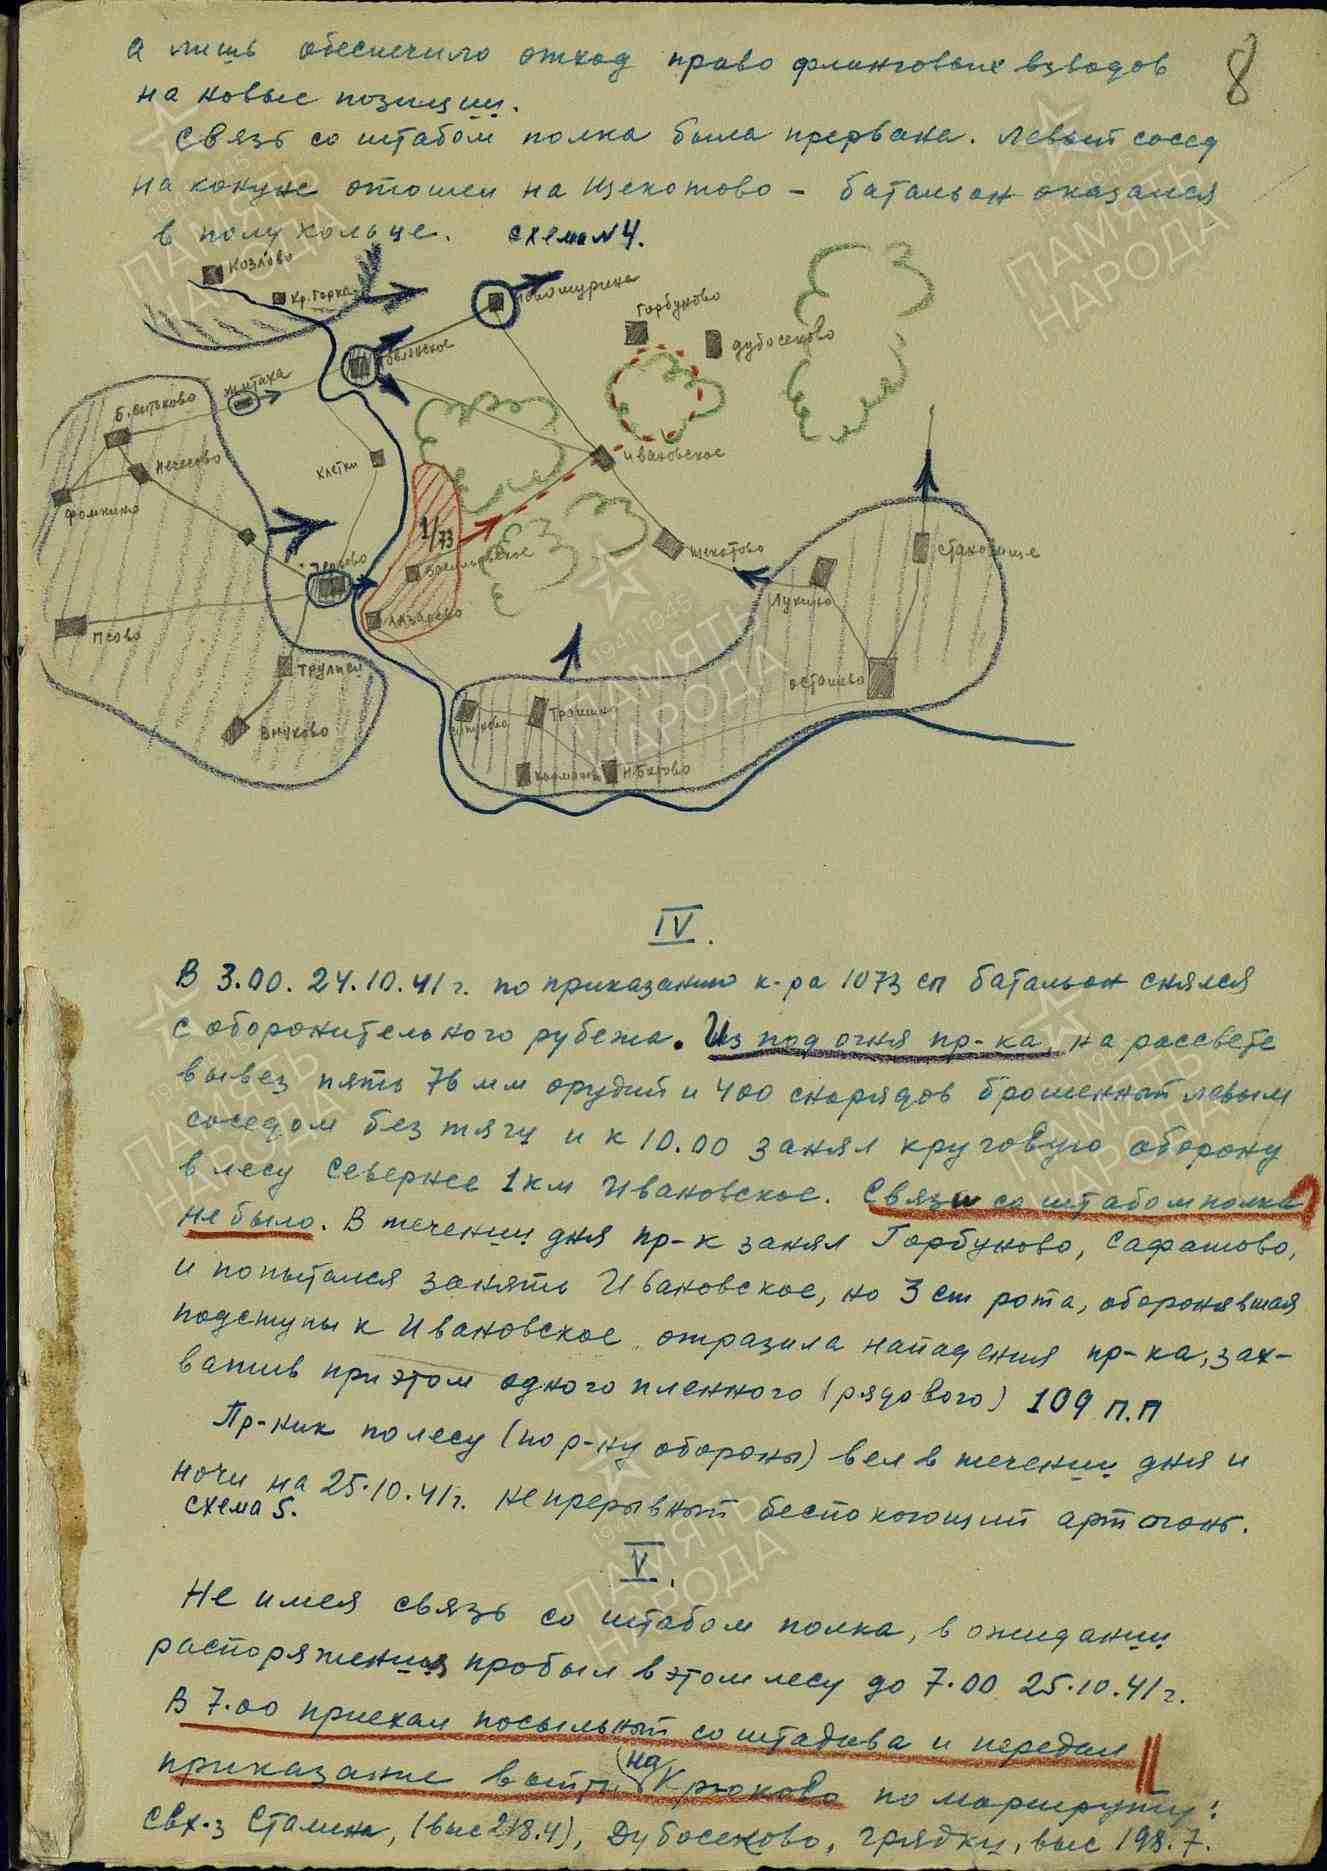 8
а лишь обеспечило отход право фланговых взводов
на новые позиции.
Связь со штабом полка была прервана. Левый сосед
на кануне отошел на Щекотово – батальон оказался
в полу кольце. схема N 4.
Козлово
Кр. Горка
Новошурино
Горбуново
Дубосеково
Житаха
Б. Ситьково
Нечесово
Клетки
Ивановское
Фомкино
1/73
Щекотово
Становище
Лукино
Псово
Лазарево
Осташево
Внуково
Н. Бухово
IV.
В 3.00. 24.10.41 г. по приказанию к-ра 1073 сп батальон снялся
с оборонительного рубежа. Из под огня пр-ка, на рассвете
вывез пять 76 мм орудий и 400 снарядов брошенный левым
соседом без тягу и к 10.00 занял круговую оборону
в лесу севернее 1 км Ивановское. Связи со штабом полка
не было. В течении дня пр-к занял Горбуново, Сафатово,
и попытался занять Ивановское, но 3 ст рота, оборонявшая
подступы к Ивановское отразила нападения пр-ка, зах-
ватив при этом одного пленного (рядового) 109 п.п
Пр-ник по лесу (по р-ну обороны) вел в течении дня и
ночи на 25.10.41 г. непрерывный беспокоющий арт огонь.
схема 5.
V.
Не имея связь со штабом полка, в ожидании
распоряжения пробыл в этом лесу до 7.00 25.10.41 г.
В 7.00 приехал посыльный со штадива и передал
приказание выйти на Крюково по маршруту:
свх-з Сталина, (выс 218.4), Дубосеково, грядки, выс 198.7.
ПАМЯТЬ НАРОДА
1941-1945
ПАМЯТЬ НАРОДА
1941-1945
ПАМЯТЬ НАРОДА
1941-1945
ПАМЯТЬ НАРОДА
1941-1945
ПАМЯТЬ НАРОДА
1941-1945
ПАМЯТЬ НАРОДА
1941-1945